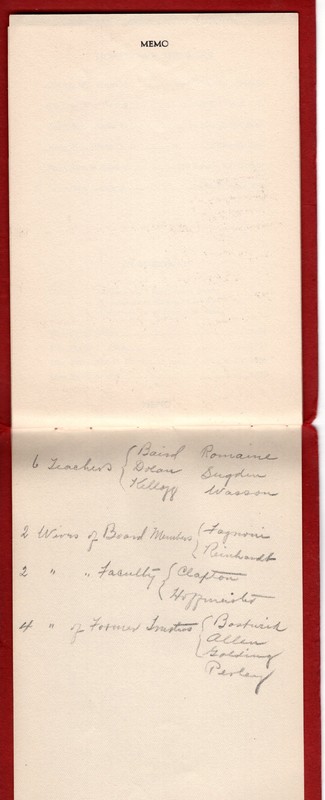 MEMO
6 Teachers { Baird Romaine
Dolan Sugden
Kellogg Wasson
2 Wives of Board Members { Fagnoni
Reinhardt
2 " " Faculty { Clapton
Hoffmeister
4 " of Former Trustees { Bostwick
Allen
Golding
Perley